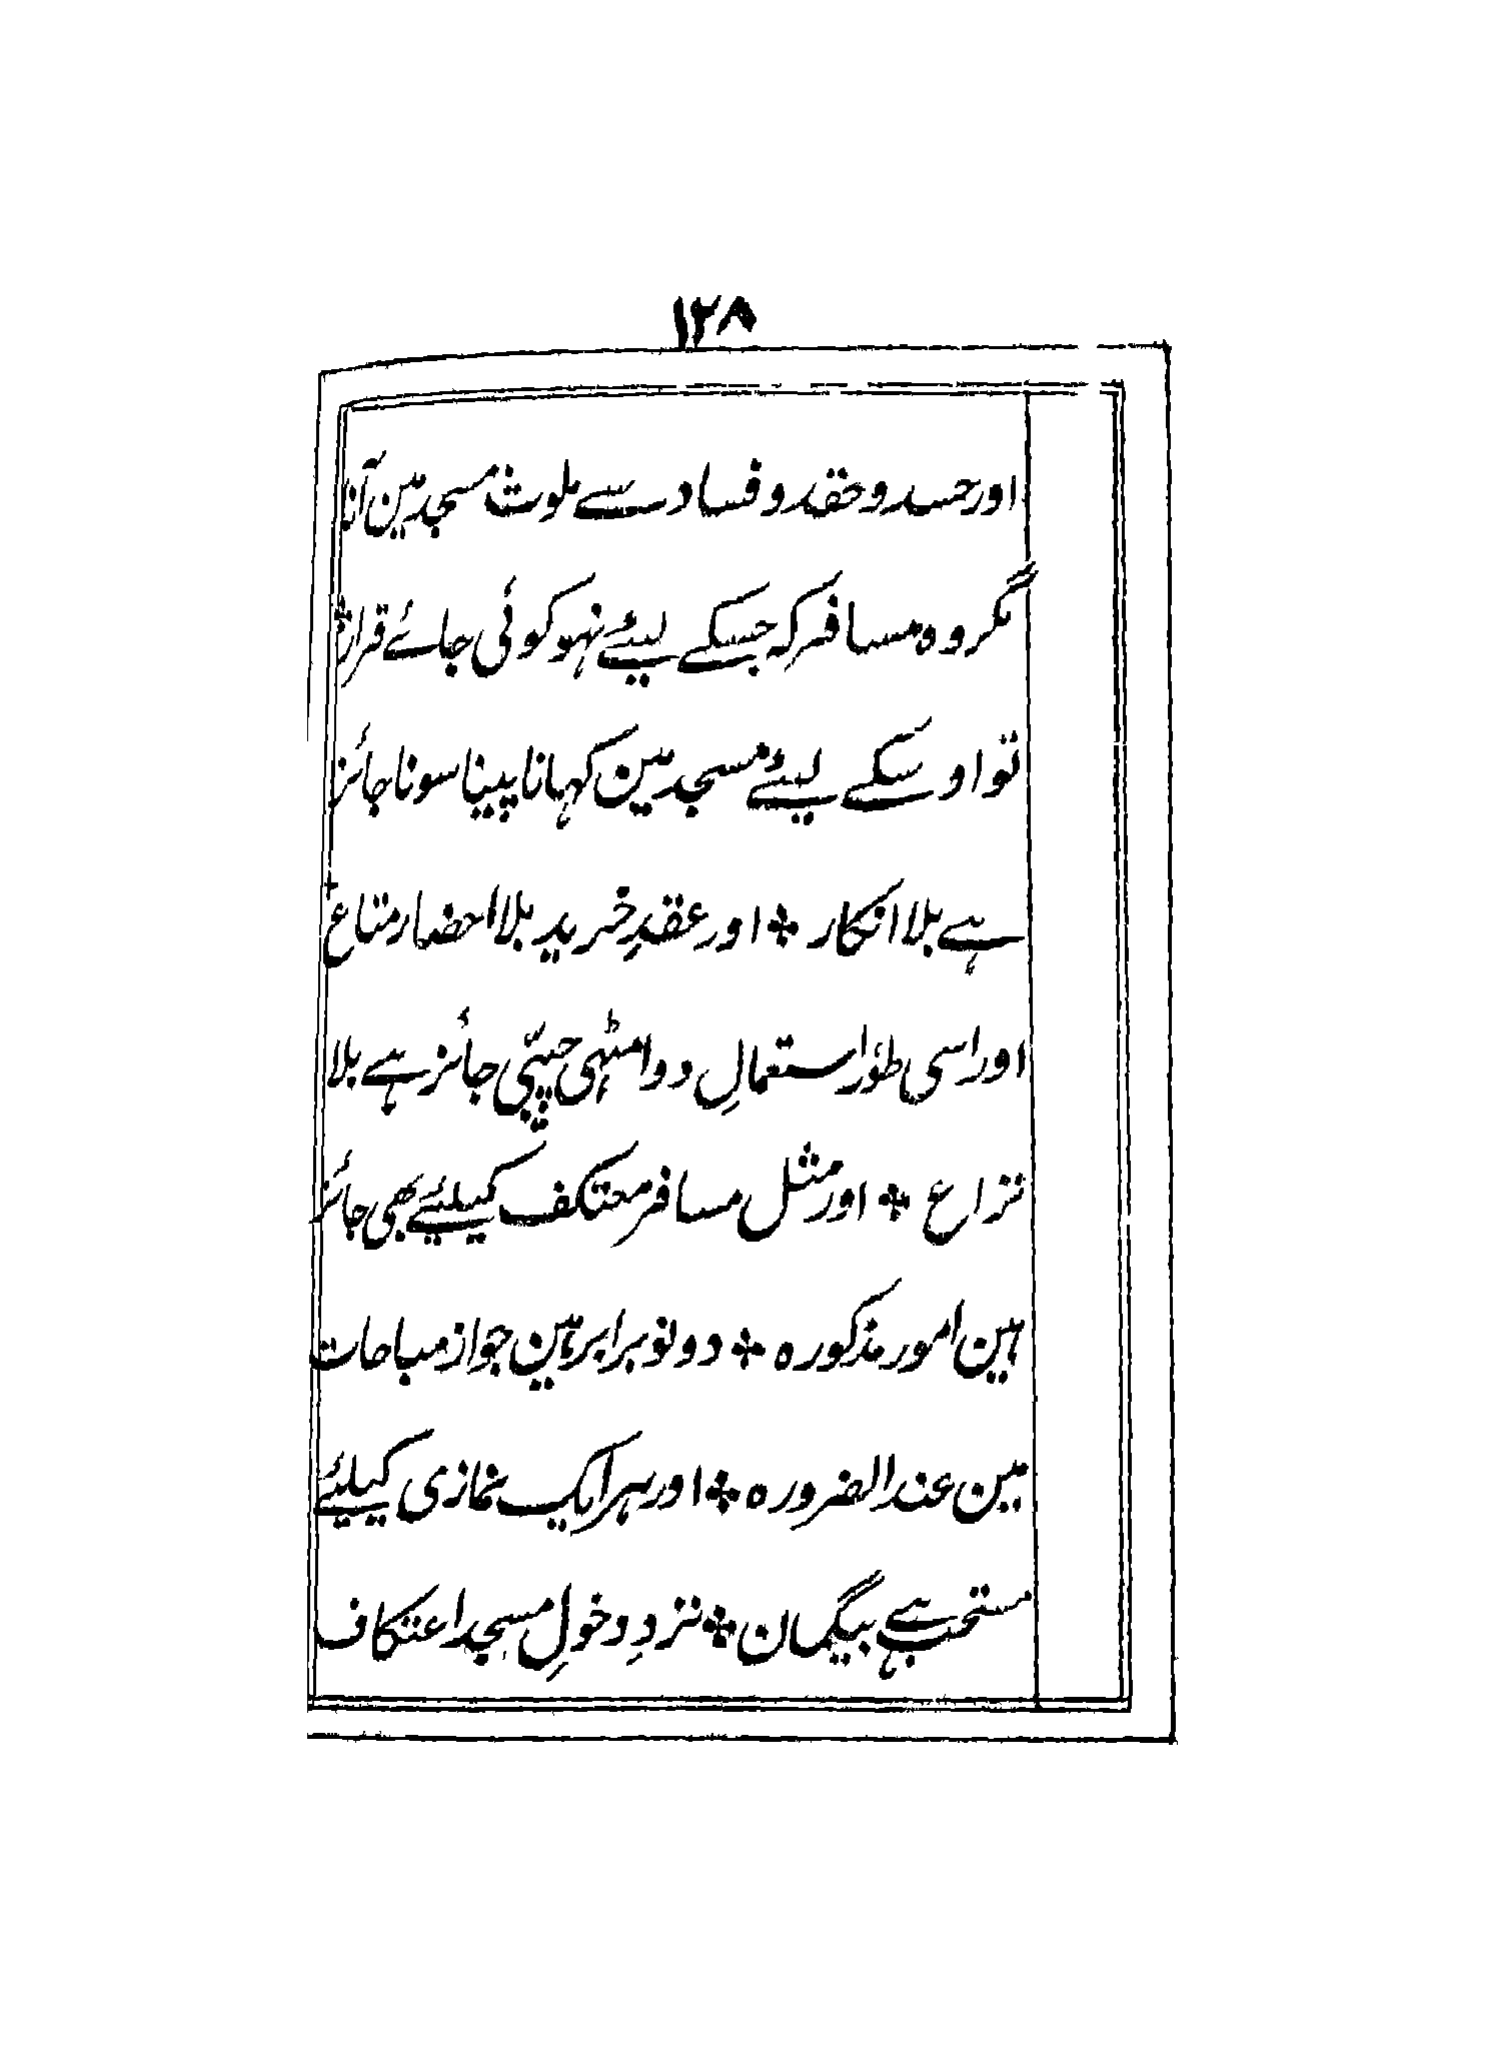 ۱۲۸
اور حسد و حقد و فساد سے ملوث مسجد مین آنا
مگر وہ مسافر کہ جسکے لیئے نہو کوئی جائے قرار
تو اوسکے لیئے مسجد مین کہانا پینا سونا جائز
ہے بلا انکار ❊ اور عقدِ خرید بلا احضار متاع
اور اسی طور استعمالِ دوا مٹھی چپّی جائز ہے بلا
نزاع ❊ اور مثل مسافر معتکف کیلیئے بھی جائز
ہین امور مذکورہ ❊ دونو برابر ہین جواز مباحات
مین عند الضرورہ ❊ اور ہر ایک نمازی کیلیئے
مستحب ہے بیگمان ❊ نزدِ دخولِ مسجد اعتکاف